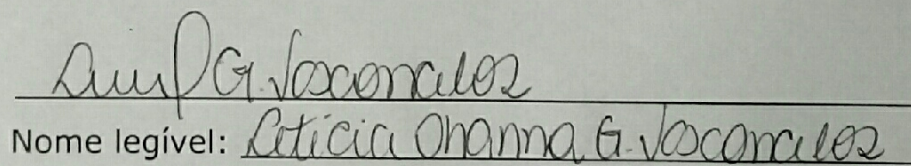 G. Vasconcelos
Nome legível: Letícia Ohanna G. Vasconcelos